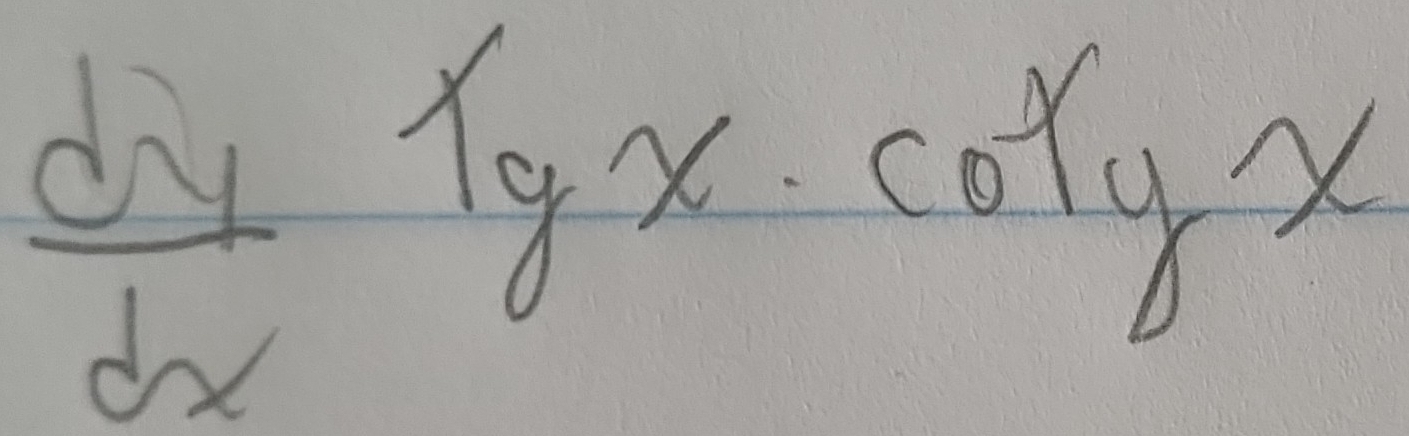 dy/dx tg x · cotg x